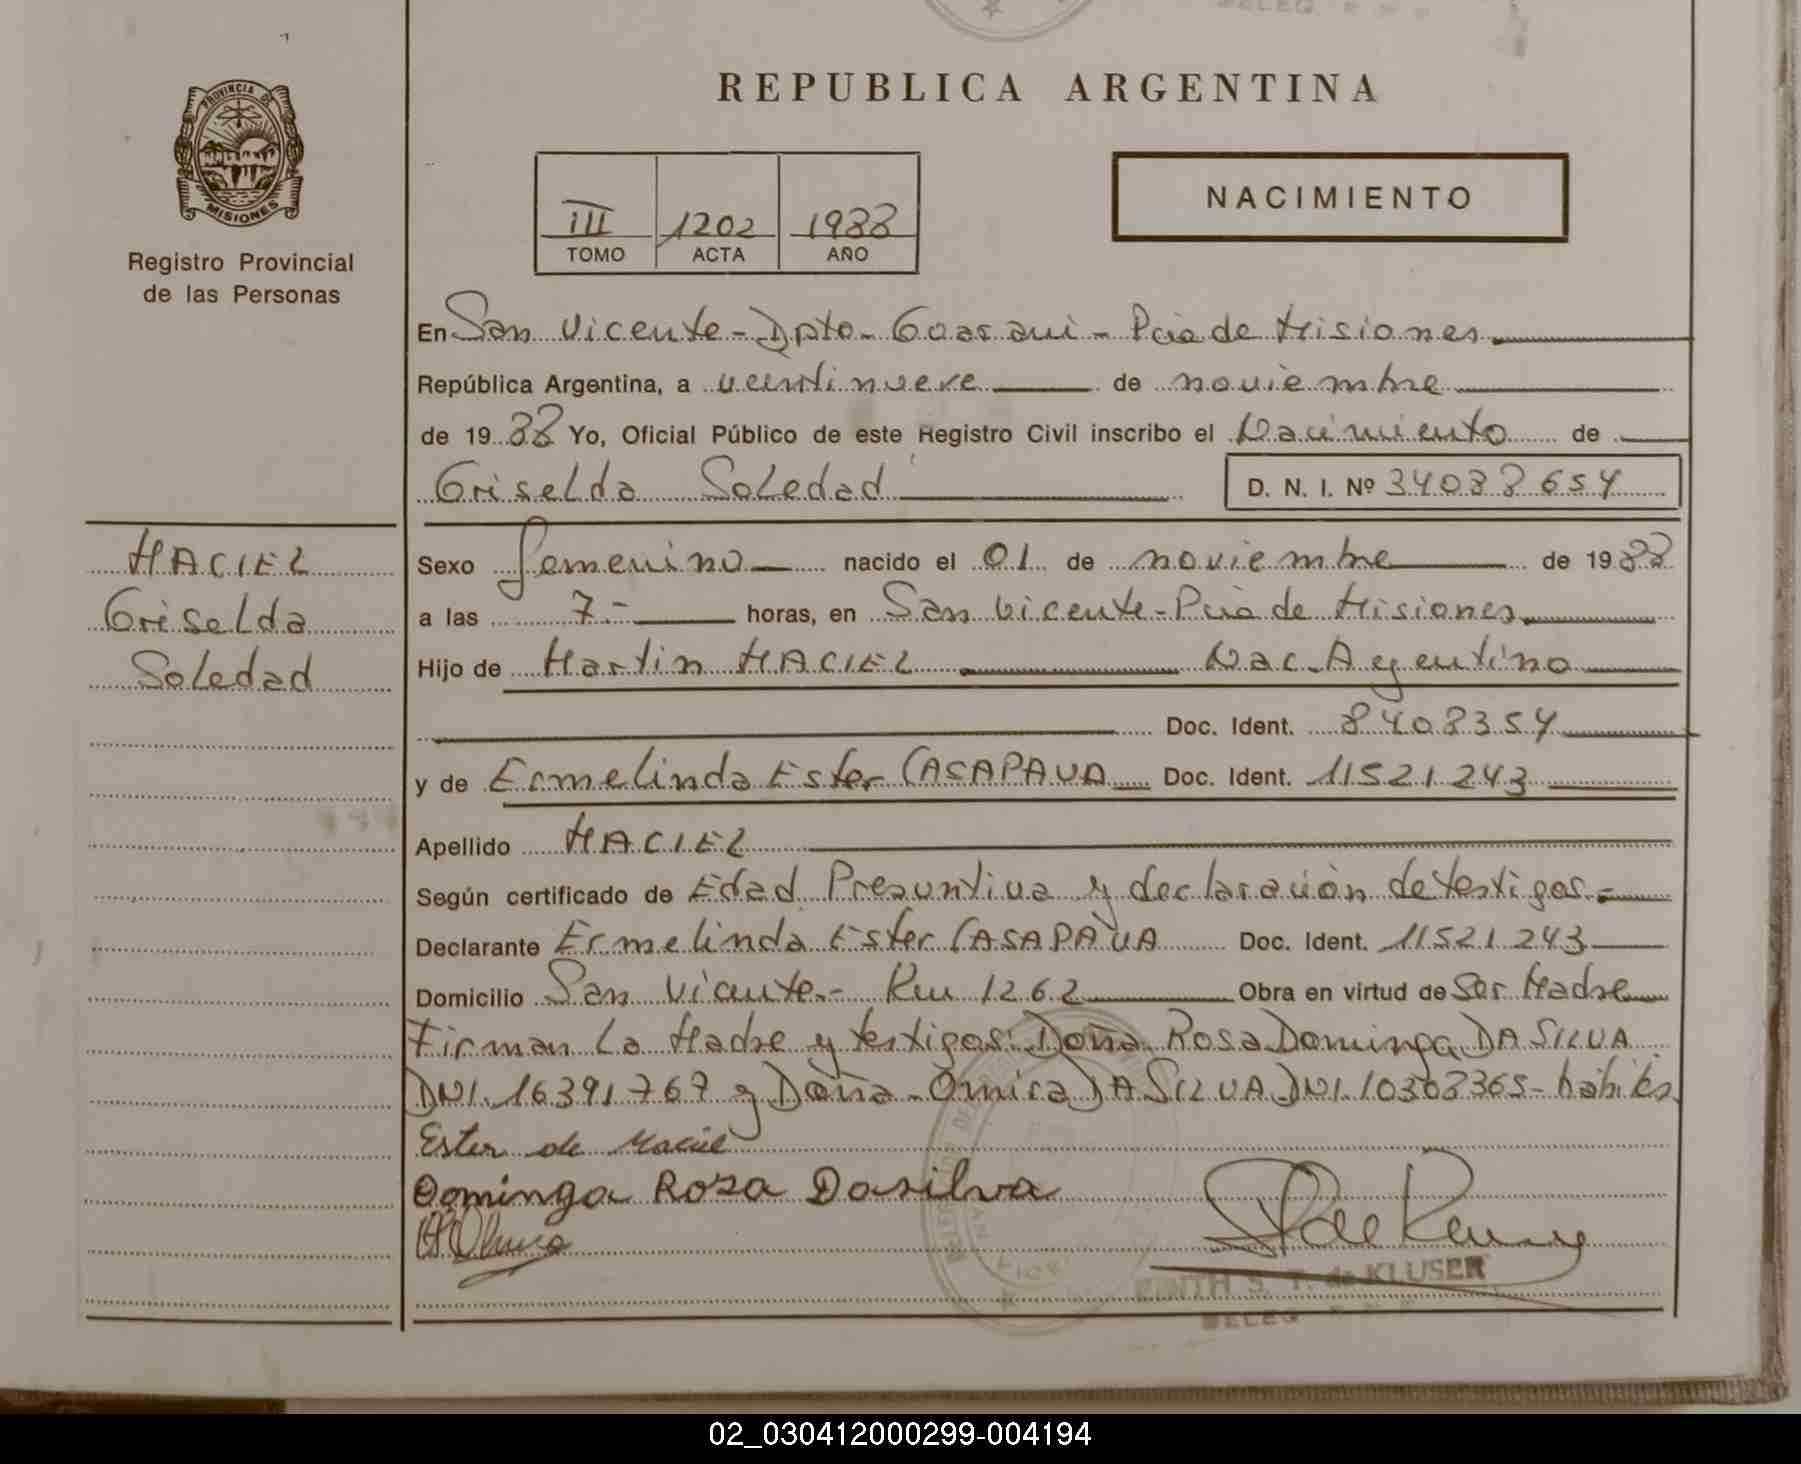 REPUBLICA ARGENTINA
PROVINCIA DE
MISIONES
Registro Provincial
de las Personas
III 1202 1988
TOMO ACTA AÑO
NACIMIENTO
En San Vicente - Dpto - Guaraní - Pcia de Misiones
República Argentina, a veintinueve de noviembre
de 1988 Yo, Oficial Público de este Registro Civil inscribo el Nacimiento de
Griselda Soledad D. N. I. Nº 34088654
MACIEL
Griselda
Soledad
Sexo femenino nacido el 01 de noviembre de 1988
a las 7- horas, en San Vicente - Pcia de Misiones
Hijo de Martin MACIEL Nac. Argentino
Doc. Ident. 8408354
y de Ermelinda Ester CASAPAVA Doc. Ident. 11521243
Apellido MACIEL
Según certificado de Edad Presuntiva y declaración de testigos.-
Declarante Ermelinda Ester CASAPAVA Doc. Ident. 11521243
Domicilio San Vicente.- Km 1262 Obra en virtud de Ser Madre
Firman la Madre y testigos: Doña Rosa Dominga DA SILVA
DNI. 16391767 y Doña DA SILVA DNI. 10308365- hábiles
Ester de Maciel
Dominga Rosa Dasilva
EDITH S. T. de KLUSER
DELEG
02_030412000299-004194